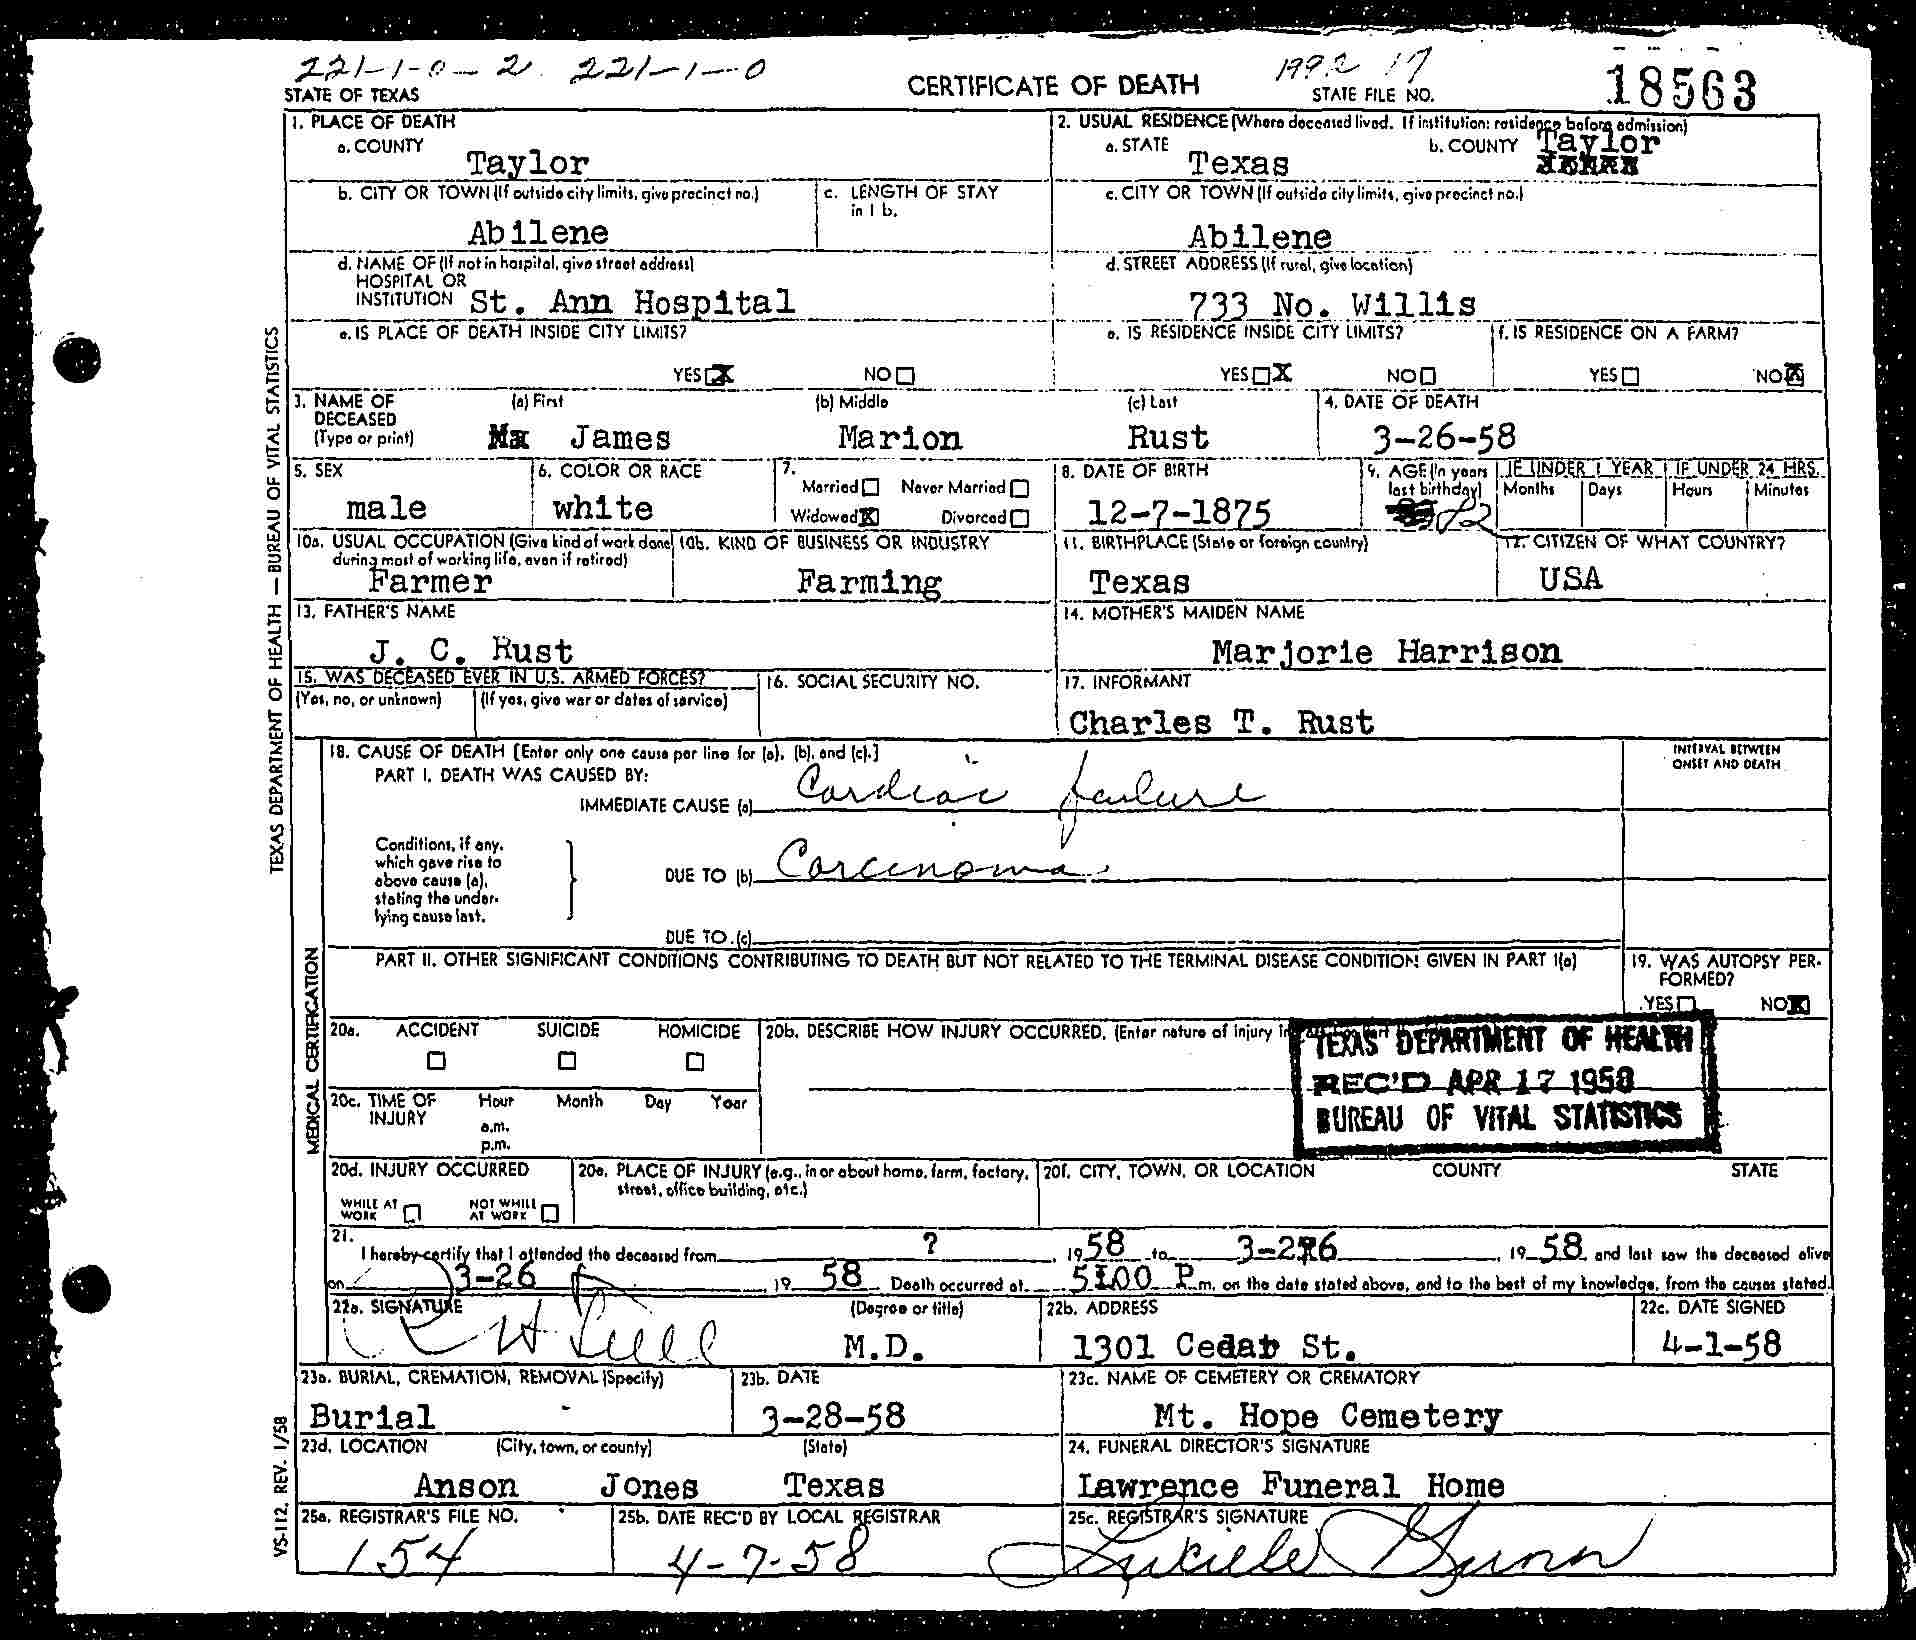 221-1-0-2 221-1-0
STATE OF TEXAS
CERTIFICATE OF DEATH
1992 17
STATE FILE NO.
18563
TEXAS DEPARTMENT OF HEALTH — BUREAU OF VITAL STATISTICS
1. PLACE OF DEATH
a. COUNTY
Taylor
2. USUAL RESIDENCE (Where deceased lived. If institution: residence before admission)
a. STATE
Texas
b. COUNTY
Taylor
b. CITY OR TOWN (If outside city limits, give precinct no.)
Abilene
c. LENGTH OF STAY
in 1 b.
c. CITY OR TOWN (If outside city limits, give precinct no.)
Abilene
d. NAME OF (If not in hospital, give street address)
HOSPITAL OR
INSTITUTION St. Ann Hospital
d. STREET ADDRESS (If rural, give location)
733 No. Willis
e. IS PLACE OF DEATH INSIDE CITY LIMITS?
YES X NO
e. IS RESIDENCE INSIDE CITY LIMITS?
YES X NO
f. IS RESIDENCE ON A FARM?
YES NO X
3. NAME OF
DECEASED
(Type or print)
(a) First
James
(b) Middle
Marion
(c) Last
Rust
4. DATE OF DEATH
3-26-58
5. SEX
male
6. COLOR OR RACE
white
7.
Married Never Married
Widowed X Divorced
8. DATE OF BIRTH
12-7-1875
9. AGE (In years
last birthday)
82
IF UNDER 1 YEAR
Months Days
IF UNDER 24 HRS.
Hours Minutes
10a. USUAL OCCUPATION (Give kind of work done
during most of working life, even if retired)
Farmer
10b. KIND OF BUSINESS OR INDUSTRY
Farming
11. BIRTHPLACE (State or foreign country)
Texas
12. CITIZEN OF WHAT COUNTRY?
USA
13. FATHER'S NAME
J. C. Rust
14. MOTHER'S MAIDEN NAME
Marjorie Harrison
15. WAS DECEASED EVER IN U.S. ARMED FORCES?
(Yes, no, or unknown) (If yes, give war or dates of service)
16. SOCIAL SECURITY NO.
17. INFORMANT
Charles T. Rust
MEDICAL CERTIFICATION
18. CAUSE OF DEATH [Enter only one cause per line for (a), (b), and (c).]
PART I. DEATH WAS CAUSED BY:
IMMEDIATE CAUSE (a) Cardiac failure
INTERVAL BETWEEN
ONSET AND DEATH
Conditions, if any,
which gave rise to
above cause (a),
stating the under-
lying cause last.
DUE TO (b) Carcinoma
DUE TO (c)
PART II. OTHER SIGNIFICANT CONDITIONS CONTRIBUTING TO DEATH BUT NOT RELATED TO THE TERMINAL DISEASE CONDITION GIVEN IN PART I(a)
19. WAS AUTOPSY PER-
FORMED?
YES NO X
20a. ACCIDENT SUICIDE HOMICIDE
20b. DESCRIBE HOW INJURY OCCURRED. (Enter nature of injury in
TEXAS DEPARTMENT OF HEALTH
REC'D APR 17 1958
BUREAU OF VITAL STATISTICS
20c. TIME OF
INJURY
Hour Month Day Year
a.m.
p.m.
20d. INJURY OCCURRED
WHILE AT
WORK
NOT WHILE
AT WORK
20e. PLACE OF INJURY (e.g., in or about home, farm, factory,
street, office building, etc.)
20f. CITY, TOWN, OR LOCATION COUNTY STATE
21.
I hereby certify that I attended the deceased from ? , 1958 to 3-26 , 1958, and last saw the deceased alive
on 3-26 , 19 58 Death occurred at 5:00 P.m. on the date stated above, and to the best of my knowledge, from the causes stated.
22a. SIGNATURE
(Degree or title)
M.D.
22b. ADDRESS
1301 Cedar St.
22c. DATE SIGNED
4-1-58
23a. BURIAL, CREMATION, REMOVAL (Specify)
Burial
23b. DATE
3-28-58
23c. NAME OF CEMETERY OR CREMATORY
Mt. Hope Cemetery
23d. LOCATION (City, town, or county) (State)
Anson Jones Texas
24. FUNERAL DIRECTOR'S SIGNATURE
Lawrence Funeral Home
25a. REGISTRAR'S FILE NO.
154
25b. DATE REC'D BY LOCAL REGISTRAR
4-7-58
25c. REGISTRAR'S SIGNATURE
Lucille Gunn
VS-112, REV. 1/58